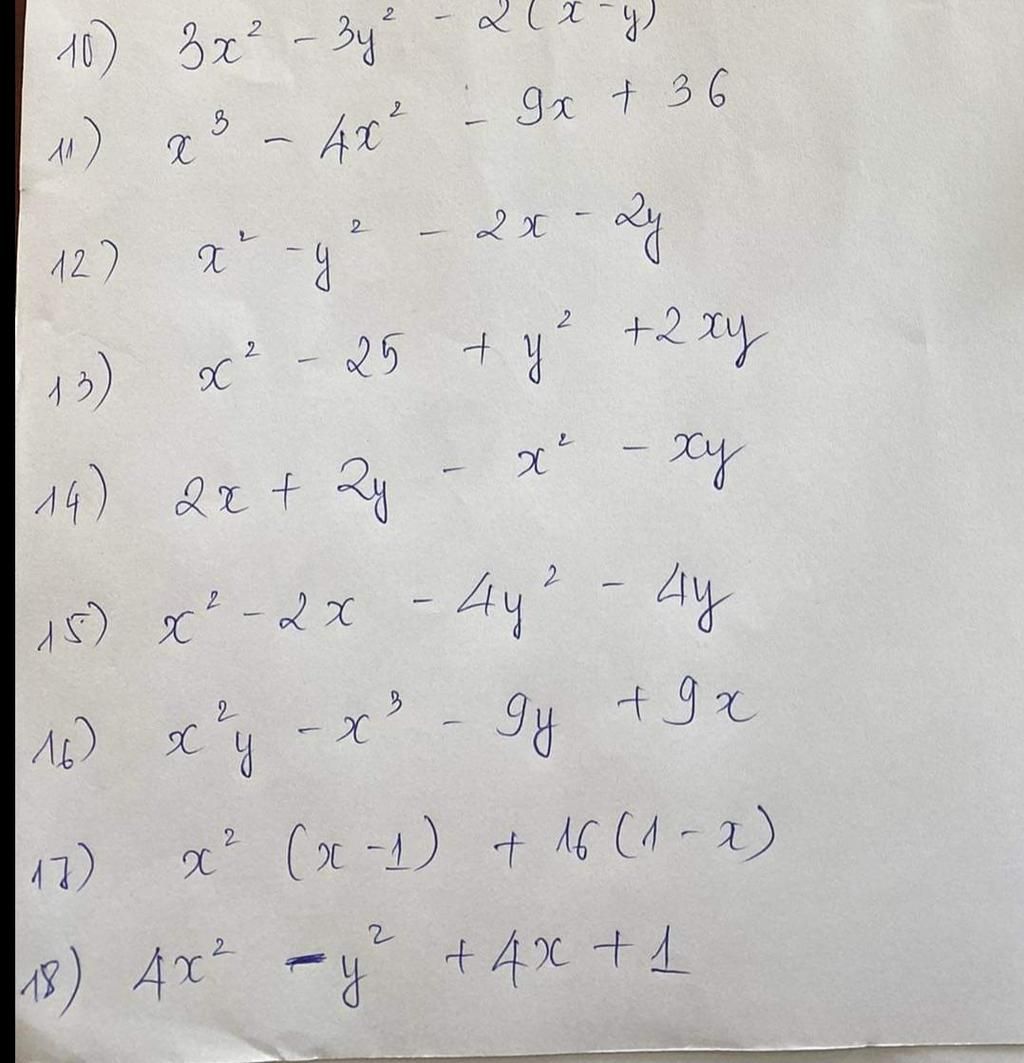 10) 3x² - 3y² - 2(x-y)
11) x³ - 4x² - 9x + 36
12) x² - y² - 2x - 2y
13) x² - 25 + y² + 2xy
14) 2x + 2y - x² - xy
15) x² - 2x - 4y² - 4y
16) x²y - x³ - 9y + 9x
17) x² (x-1) + 16(1-x)
18) 4x² - y² + 4x + 1